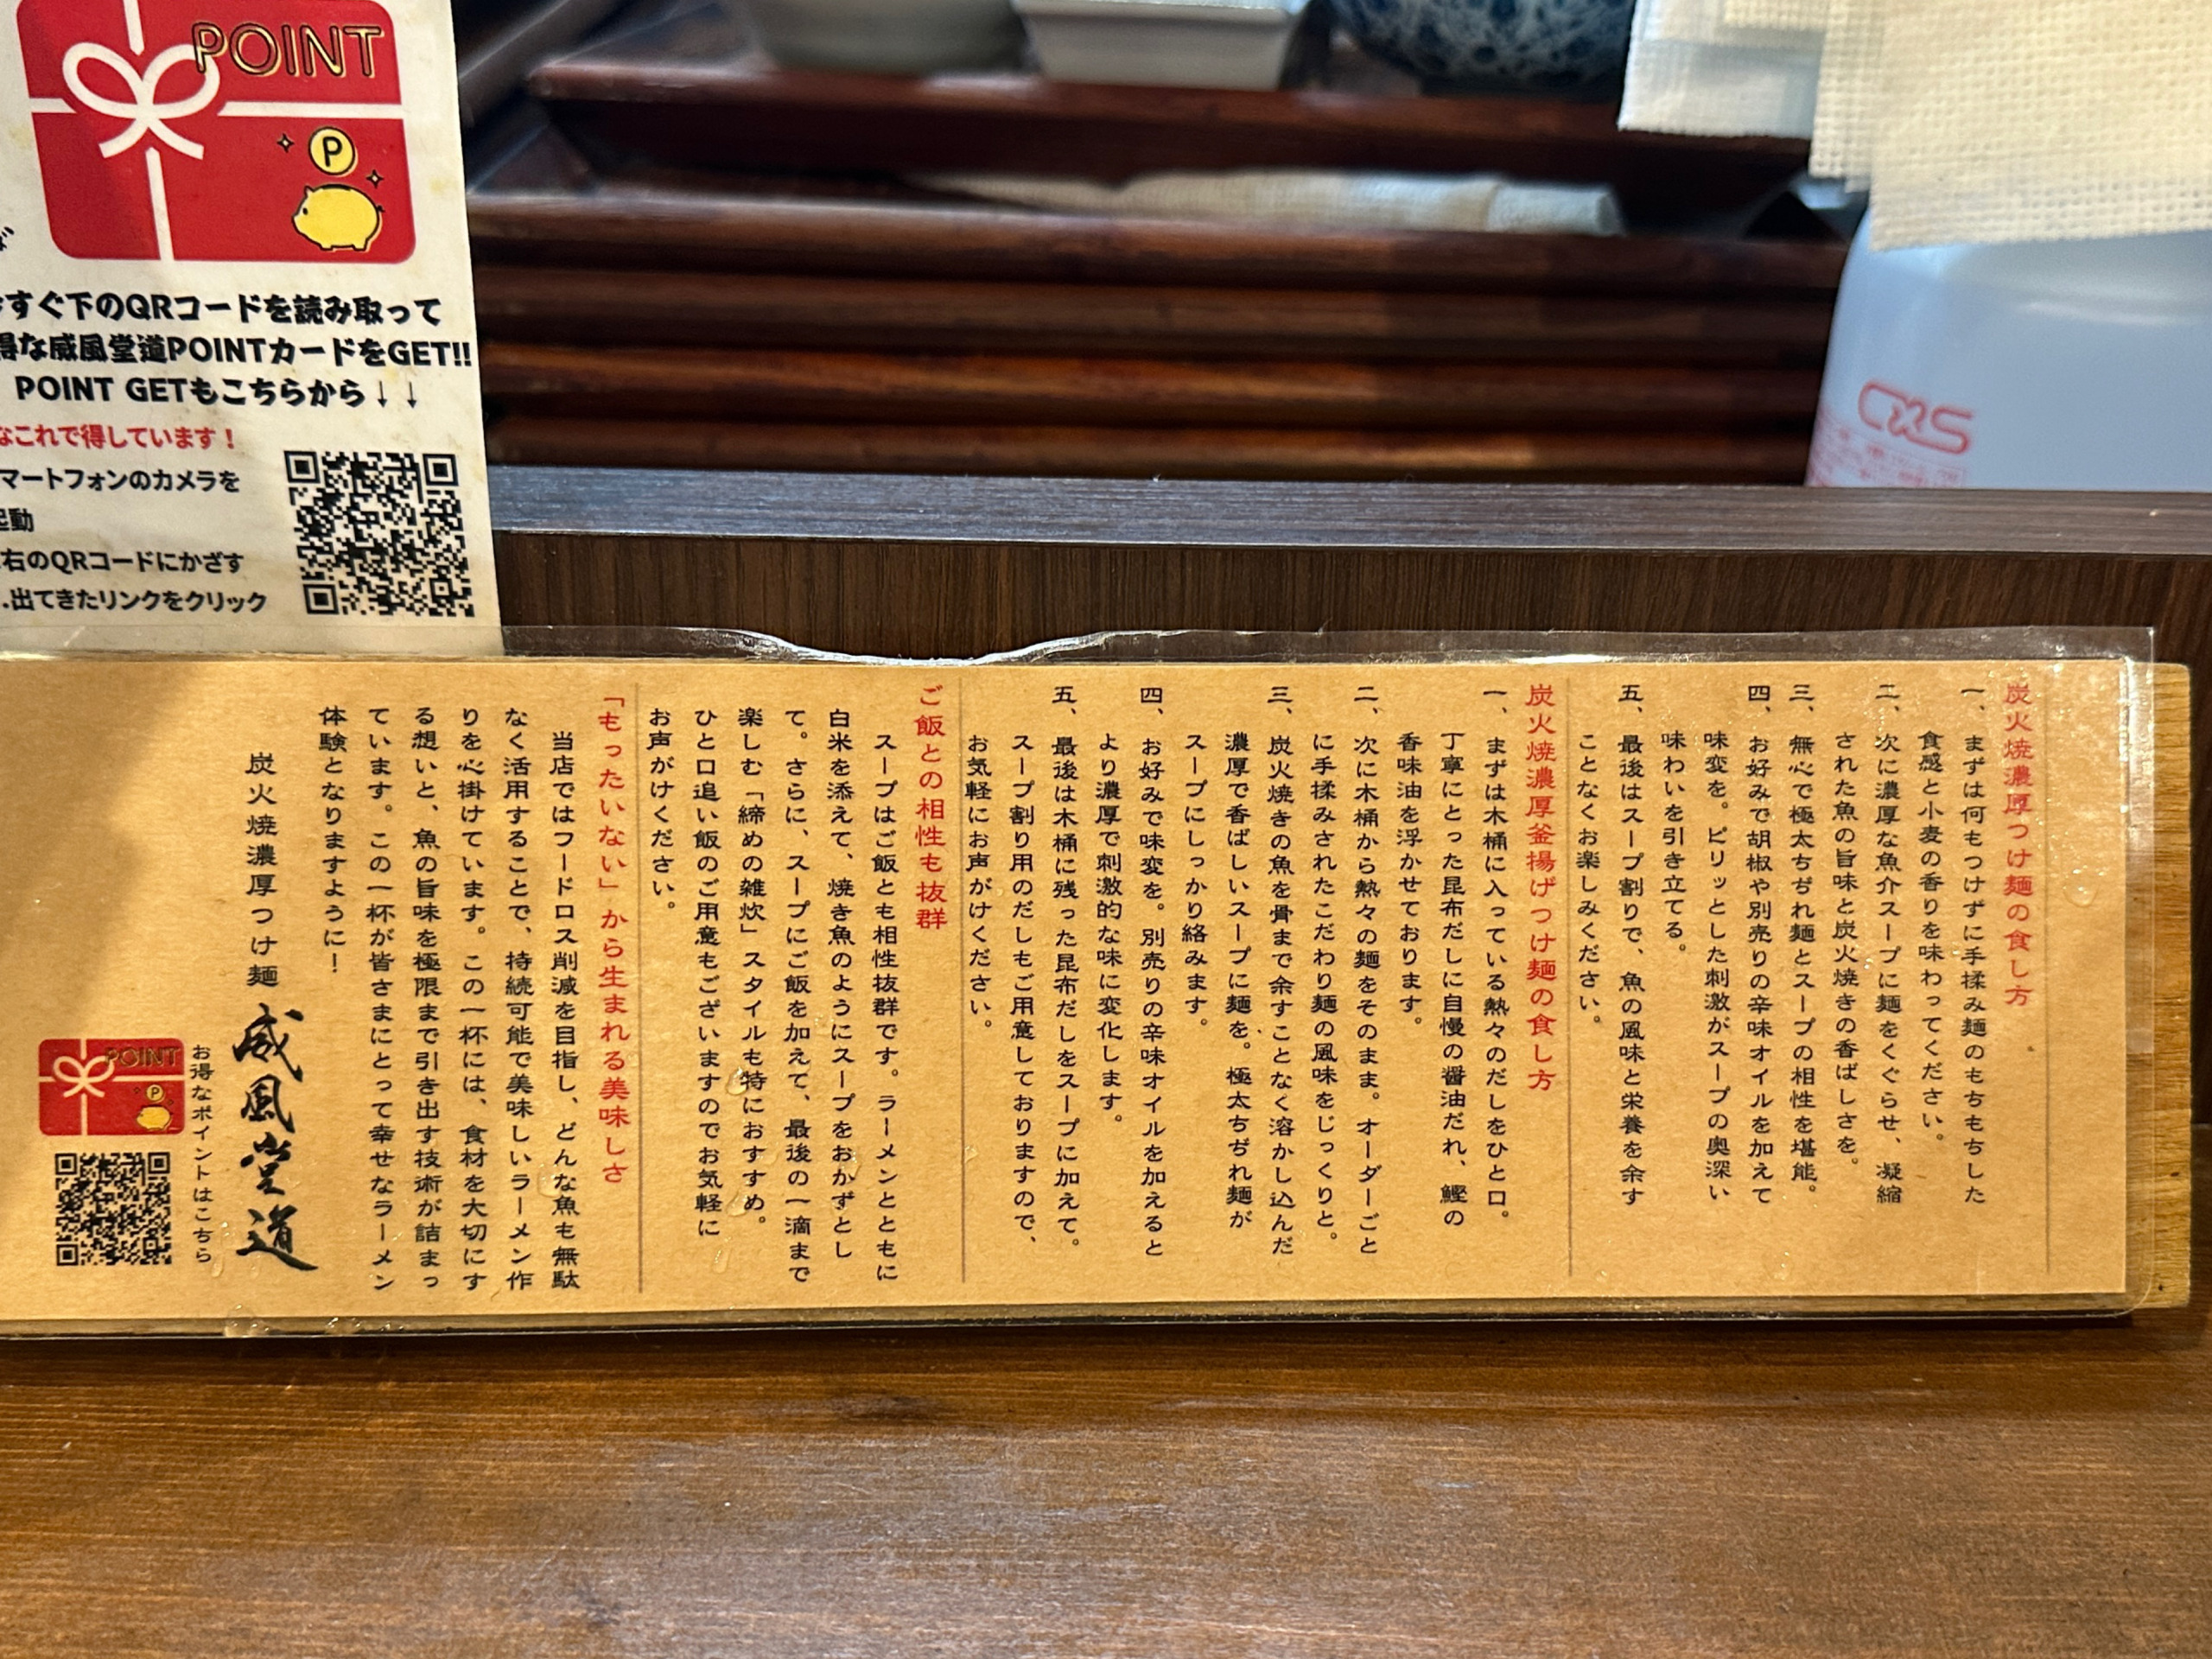 POINT
P
すぐ下のQRコードを読み取って
得な威風堂道POINTカードをGET!!
POINT GETもこちらから↓↓
なこれで得しています!
マートフォンのカメラを
起動
右のQRコードにかざす
.出てきたリンクをクリック
CXS
炭火焼濃厚つけ麺の食し方
一、まずは何もつけずに手揉み麺のもちもちした
食感と小麦の香りを味わってください。
二、次に濃厚な魚介スープに麺をくぐらせ、凝縮
された魚の旨味と炭火焼きの香ばしさを。
三、無心で極太ちぢれ麺とスープの相性を堪能。
四、お好みで胡椒や別売りの辛味オイルを加えて
味変を。ピリッとした刺激がスープの奥深い
味わいを引き立てる。
五、最後はスープ割りで、魚の風味と栄養を余す
ことなくお楽しみください。
炭火焼濃厚釜揚げつけ麺の食し方
一、まずは木桶に入っている熱々のだしをひと口。
丁寧にとった昆布だしに自慢の醤油だれ、鰹の
香味油を浮かせております。
二、次に木桶から熱々の麺をそのまま。オーダーごと
に手揉みされたこだわり麺の風味をじっくりと。
三、炭火焼きの魚を骨まで余すことなく溶かし込んだ
濃厚で香ばしいスープに麺を。極太ちぢれ麺が
スープにしっかり絡みます。
四、お好みで味変を。別売りの辛味オイルを加えると
より濃厚で刺激的な味に変化します。
五、最後は木桶に残った昆布だしをスープに加えて。
スープ割り用のだしもご用意しておりますので、
お気軽にお声がけください。
ご飯との相性も抜群
スープはご飯とも相性抜群です。ラーメンとともに
白米を添えて、焼き魚のようにスープをおかずとし
て。さらに、スープにご飯を加えて、最後の一滴まで
楽しむ「締めの雑炊」スタイルも特におすすめ。
ひと口追い飯のご用意もございますのでお気軽に
お声がけください。
「もったいない」から生まれる美味しさ
当店ではフードロス削減を目指し、どんな魚も無駄
なく活用することで、持続可能で美味しいラーメン作
りを心掛けています。この一杯には、食材を大切にす
る想いと、魚の旨味を極限まで引き出す技術が詰まっ
ています。この一杯が皆さまにとって幸せなラーメン
体験となりますように!
炭火焼濃厚つけ麺 威風堂道
お得なポイントはこちら
POINT
P